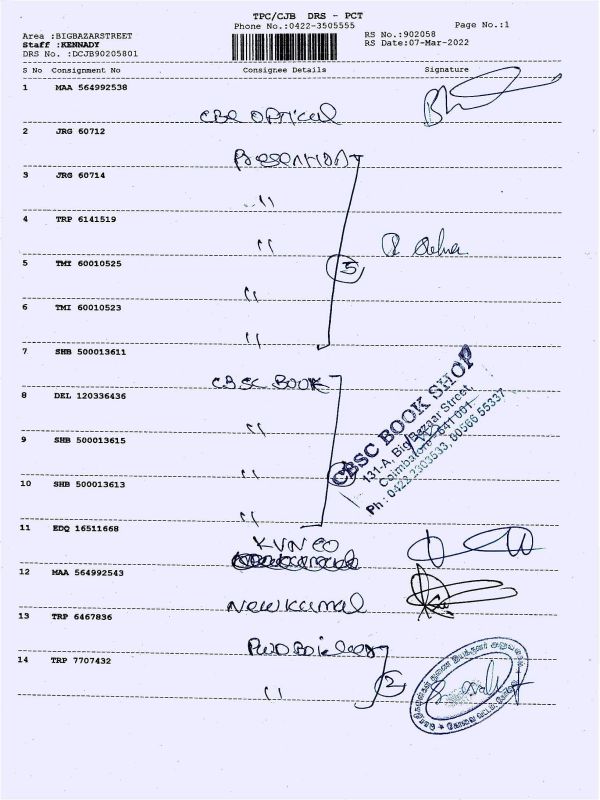 TPC/CJB DRS - PCT
Phone No.:0422-3505555
Page No.:1
Area :BIGBAZARSTREET
Staff :KENNADY
DRS No. :DCJB90205801
RS No.:902058
RS Date:07-Mar-2022
S No Consignment No Consignee Details Signature
1 MAA 564992538
CBE OPtical
2 JRG 60712
Presention
3 JRG 60714
"
4 TRP 6141519
"
5 TMI 60010525
" 5
6 TMI 60010523
"
7 SHB 500013611
CBSC BOOK
8 DEL 120336436
"
9 SHB 500013615
"
10 SHB 500013613
"
CBSC BOOK SHOP
131-A, Big Bazaar Street,
Coimbatore - 641 001.
Ph : 0422 2303533, 60566 55337
11 EDQ 16511668
KVN CO
12 MAA 564992543
New Kamal
13 TRP 6467836
14 TRP 7707432
" 2